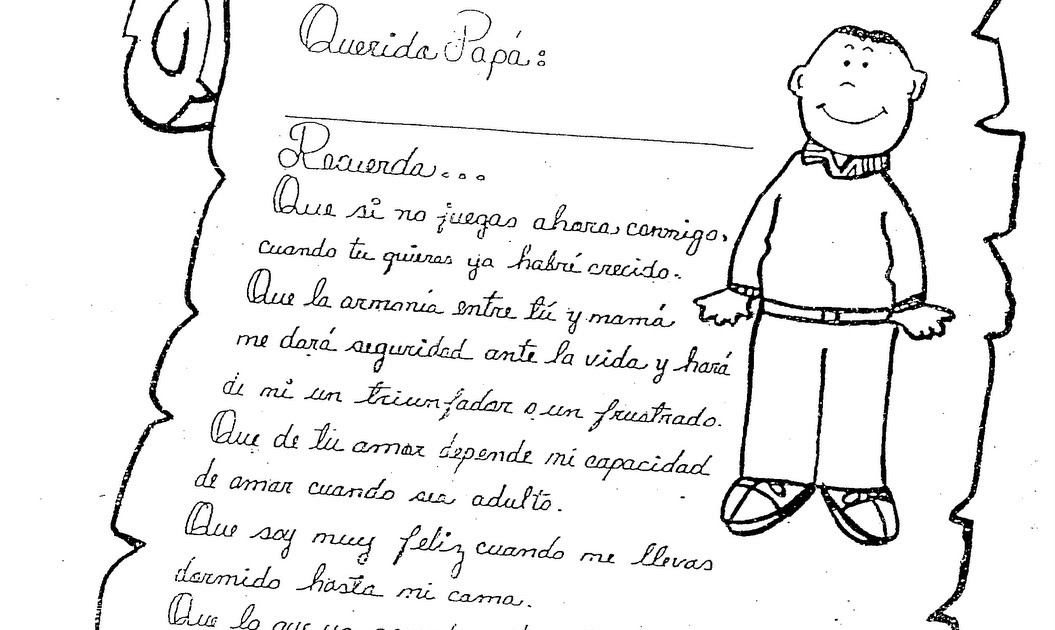 Querida Papá:
Recuerda...
Que si no juegas ahora conmigo,
cuando tu quieras ya habré crecido.
Que la armonía entre tú y mamá
me dará seguridad ante la vida y hará
de mi un triunfador o un frustrado.
Que de tu amor depende mi capacidad
de amar cuando sea adulto.
Que soy muy feliz cuando me llevas
dormido hasta mi cama.
Que lo que yo